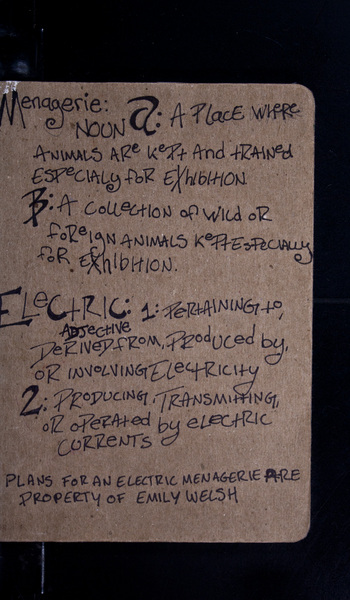 Menagerie: a: A PLACE WHERE
NOUN
ANIMALS ARE KEPT And tRAINED
ESPECIALY foR EXhIBITION
B: A COLLECTION of WILD OR
foREIGN ANIMALS KEPT ESPECIALLY
foR EXhIBITION.
ELECTRIC: 1: PERTAINING to,
ADJECTIVE
DERIVED FROM, PRODUCED by,
OR INVOLVING ELECTRICITY
2: PRODUCING, TRANSMITTING,
OR OPERATED by ELECTRIC
CURRENTS
PLANS FOR AN ELECTRIC MENAGERIE ARE
PROPERTY OF EMILY WELSH